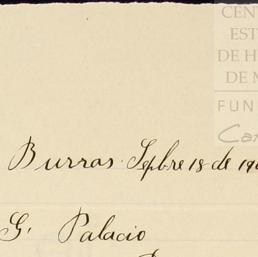 CEN
EST
DE H
DE M
FUN
Car
Burras. Sepbre 18 de 19
G. Palacio